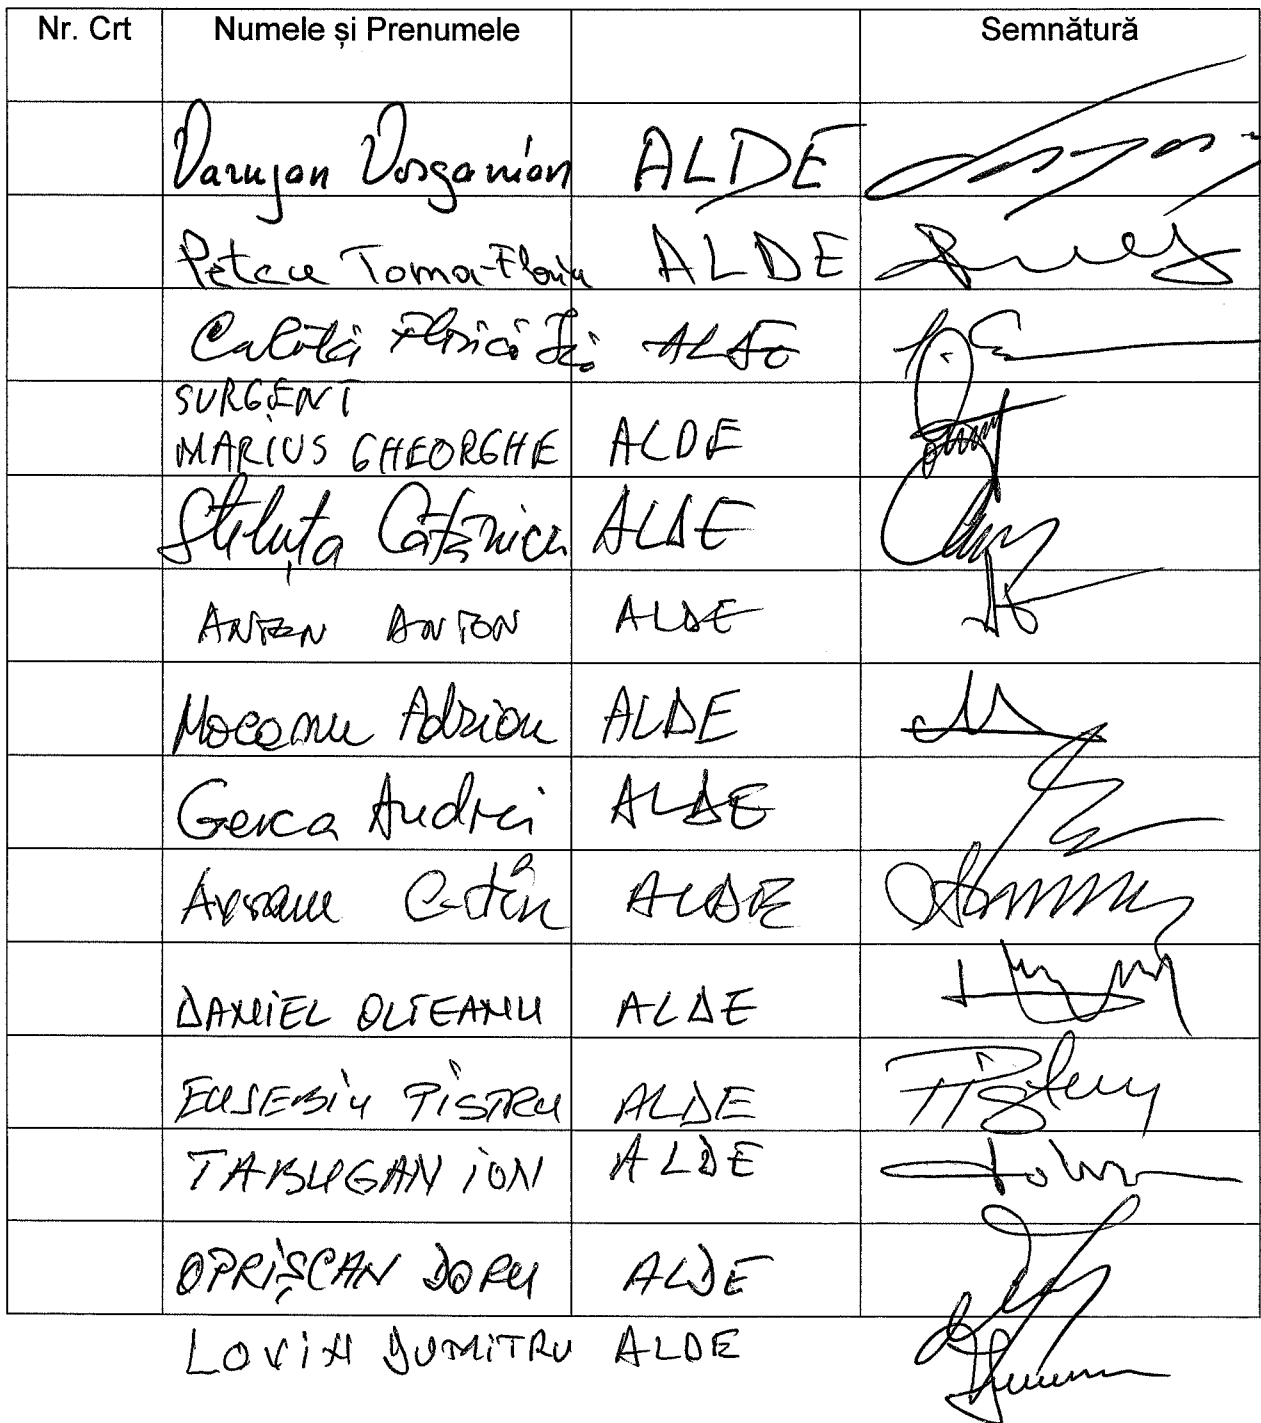 Nr. Crt Numele și Prenumele Semnătură
Varujan Vosganian ALDE
Petcu Toma-Florin ALDE
Calotă Florică Ică ALDE
SURGENT
MARIUS GHEORGHE ALDE
Steluța Cătăniciu ALDE
ANTON ANTON ALDE
Mocanu Adrian ALDE
Gerea Andrei ALDE
Avram C-tin ALDE
DANIEL OLTEANU ALDE
EUSEBIU PISTRU ALDE
TABUGAN ION ALDE
OPRIȘCAN DORU ALDE
LOVIN DUMITRU ALDE